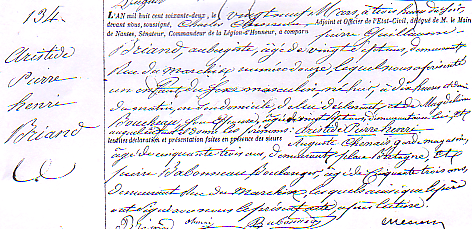 134.
Aristide
Pierre
henri
Briand
L'AN mil huit cent soixante-deux, le vingt neuf Mars, à trois heures du soir,
devant nous, soussigné, Adjoint et Officier de l'Etat-Civil, délégué de M. le Maire
de Nantes, Sénateur, Commandeur de la Légion-d'Honneur, a comparu pierre Guillaume
Briand aubergiste, âgé de vingt sept ans, demeurant
rue du marchix, numéro douze, lequel nous a présenté
un enfant du sexe masculin, né hier, à dix heures et demie
du matin, en sa demeure, de lui déclarant, et de Magdeleine
Boucheau, son épouse, âgée de vingt
auquel il a donné les prénoms: Aristide Pierre henri
lesdites déclaration et présentation faites en présence des sieurs Auguste Chenais garde magasin,
âgé de cinquante trois ans, demeurant place Bretagne, Et
pierre Babonneau Boulanger, âgé de cinquante trois ans,
demeurant rue du Marchix, lesquels ainsi que le père
ont signé avec nous le présent acte, après lecture.
Briand Chenais Babonneau